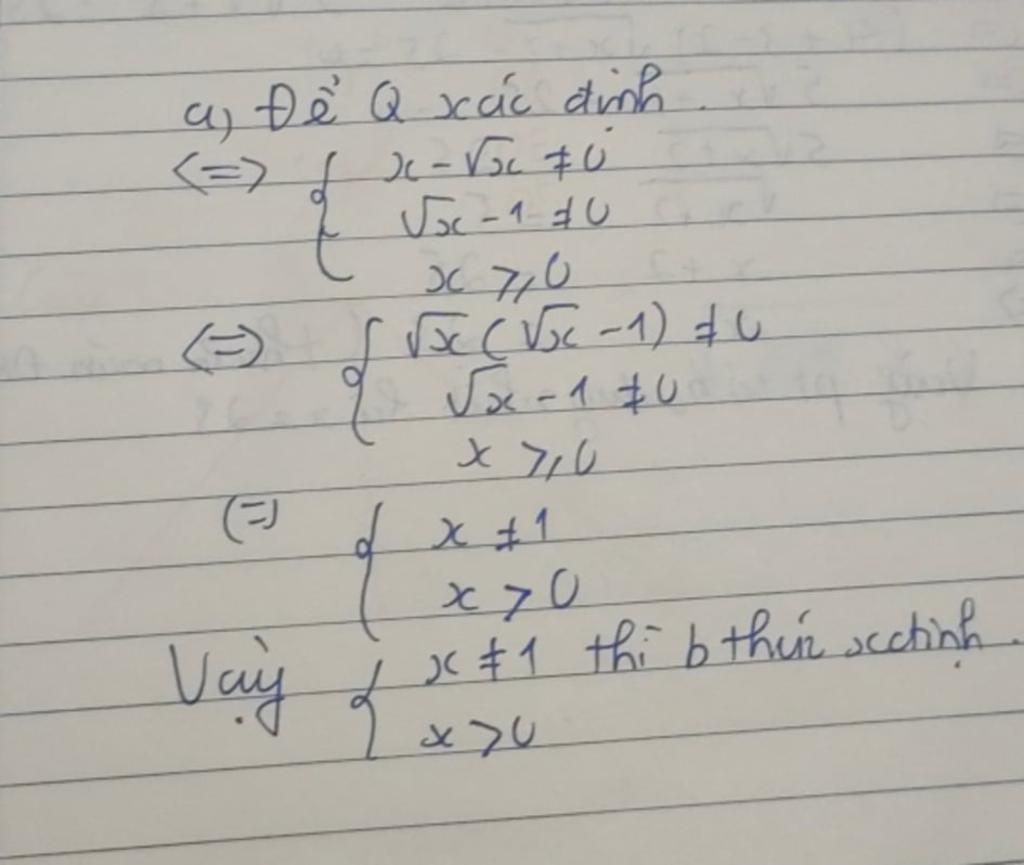 a, Để Q xác định.
<=> { x - √x ≠ 0
√x - 1 ≠ 0
x ≥ 0
<=> { √x (√x - 1) ≠ 0
√x - 1 ≠ 0
x ≥ 0
(=) { x ≠ 1
x > 0
Vậy { x ≠ 1 thì b thức xđịnh.
x > 0